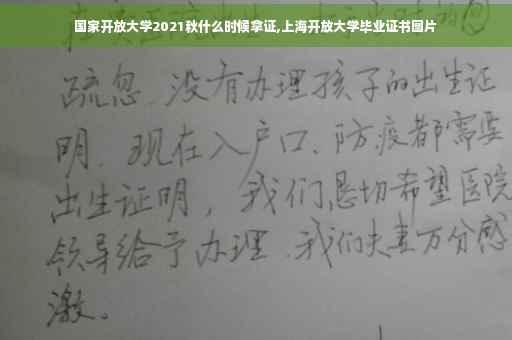 国家开放大学2021秋什么时候拿证,上海开放大学毕业证书图片
疏忽、没有办理孩子的出生证
明、现在入户口、防疫都需要
出生证明，我们恳切希望医院
领导给予办理、我们夫妻万分感
激。